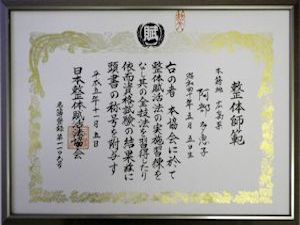 賦
整体師範
本籍地 広島県
阿部 恵子
昭和四十年五月五日生
右の者 本協会に於て
整体賦活法の実施習練を
なし其の全技法を習得したり
依而資格試験の結果茲に
頭書の称号を附与す
平成五年十一月五日
日本整体賦活法協会